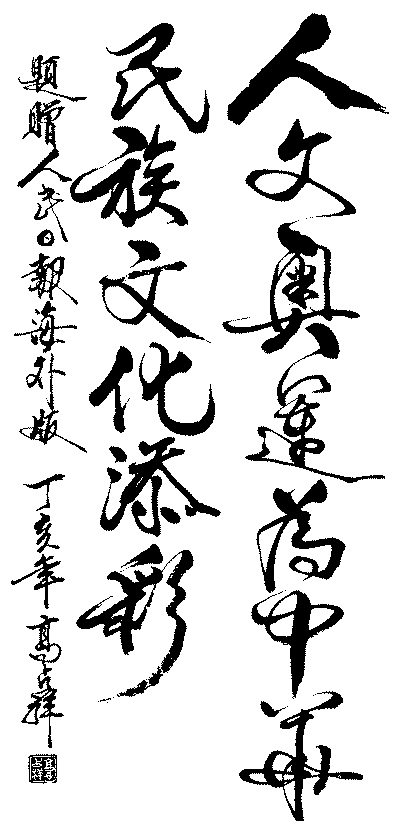 人文奥運為中華
民族文化添彩
題贈人民日報海外版
丁亥年高占祥